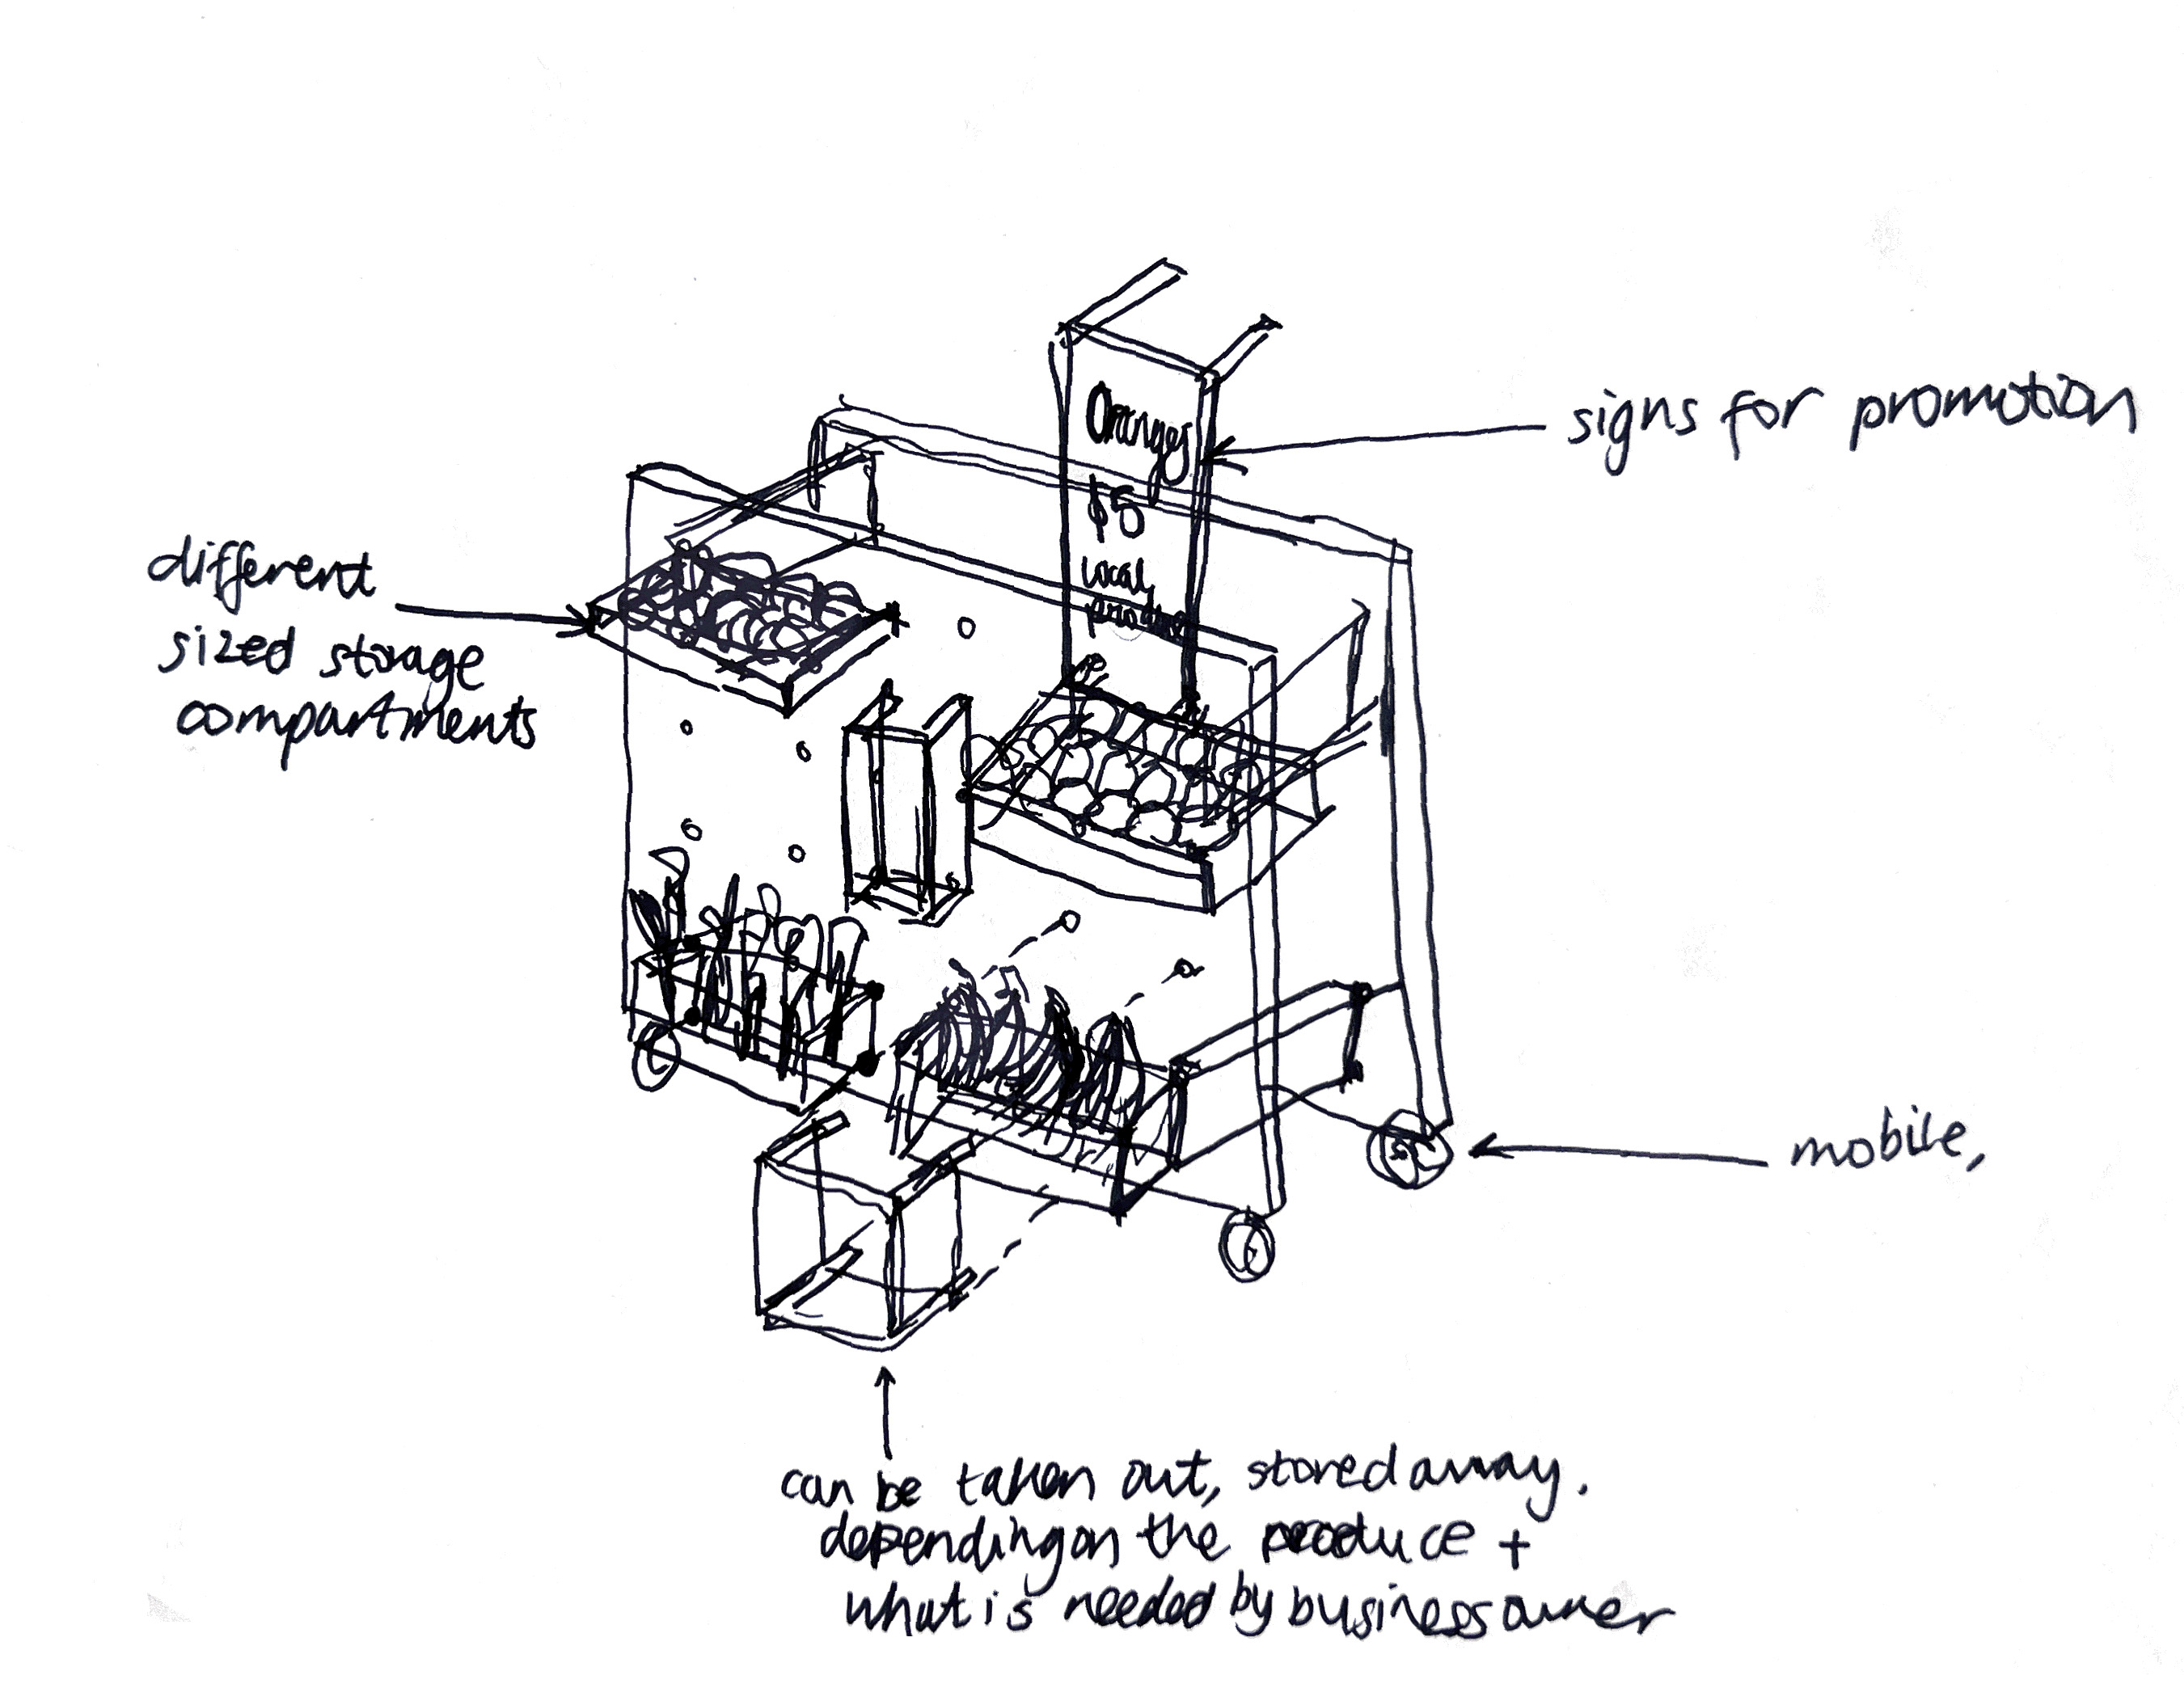 Oranges
$5
Local
produce
signs for promotion
different
sized storage
compartments
mobile,
can be taken out, stored away.
depending on the produce +
what is needed by business owner